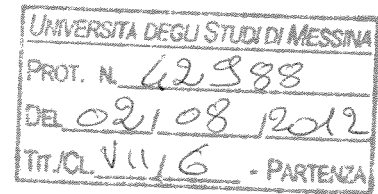 UNIVERSITÀ DEGLI STUDI DI MESSINA
PROT. N. 42988
DEL 02/08/2012
TIT./CL. VII/6 - PARTENZA